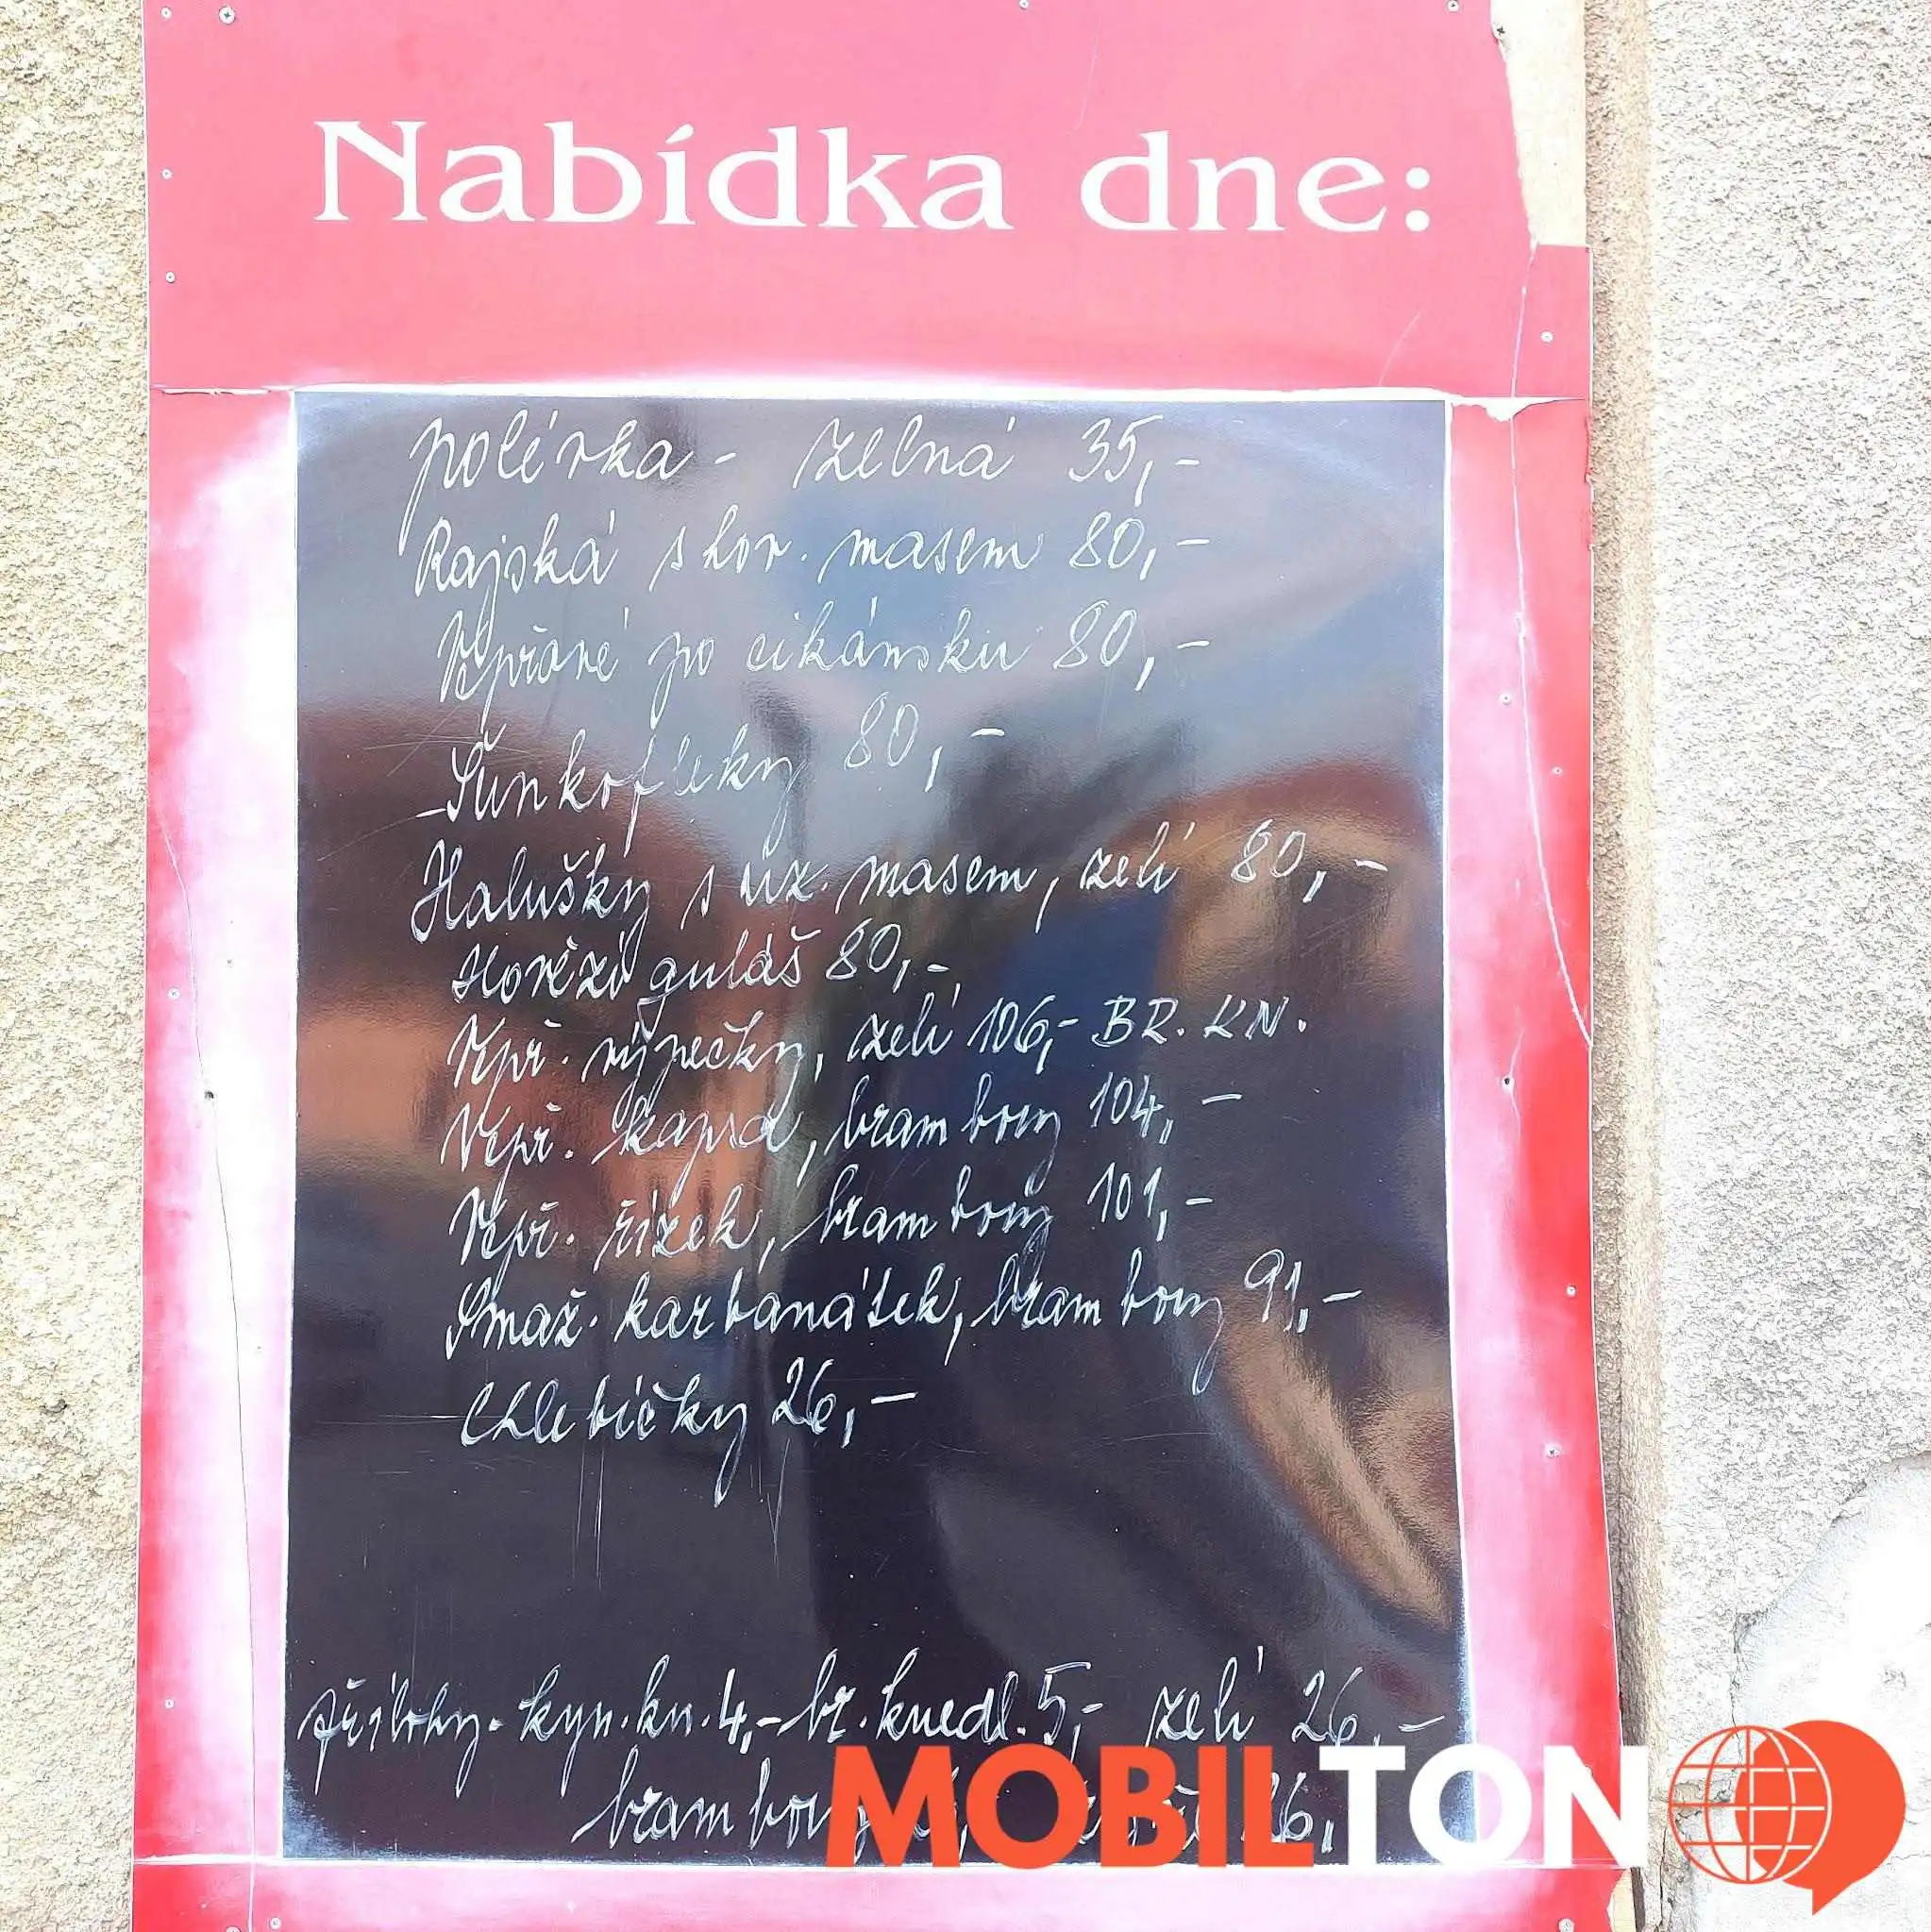 Nabídka dne:
polévka - zelná 35,-
Rajská s hov. masem 80,-
Vepřové po cikánsku 80,-
Šunkofleky 80,-
Halušky s uz. masem, zelí 80,-
Hovězí guláš 80,-
Vepř. výpečky, zelí 106,- BR. KN.
Vepř. kapsa, brambory 104,-
Vepř. řízek, brambory 101,-
Smaž. karbanátek, brambory 91,-
Chlebíčky 26,-
přílohy - kyn. kn. 4,- br. knedl. 5,- zelí 26,-
brambory 26,
MOBILTON